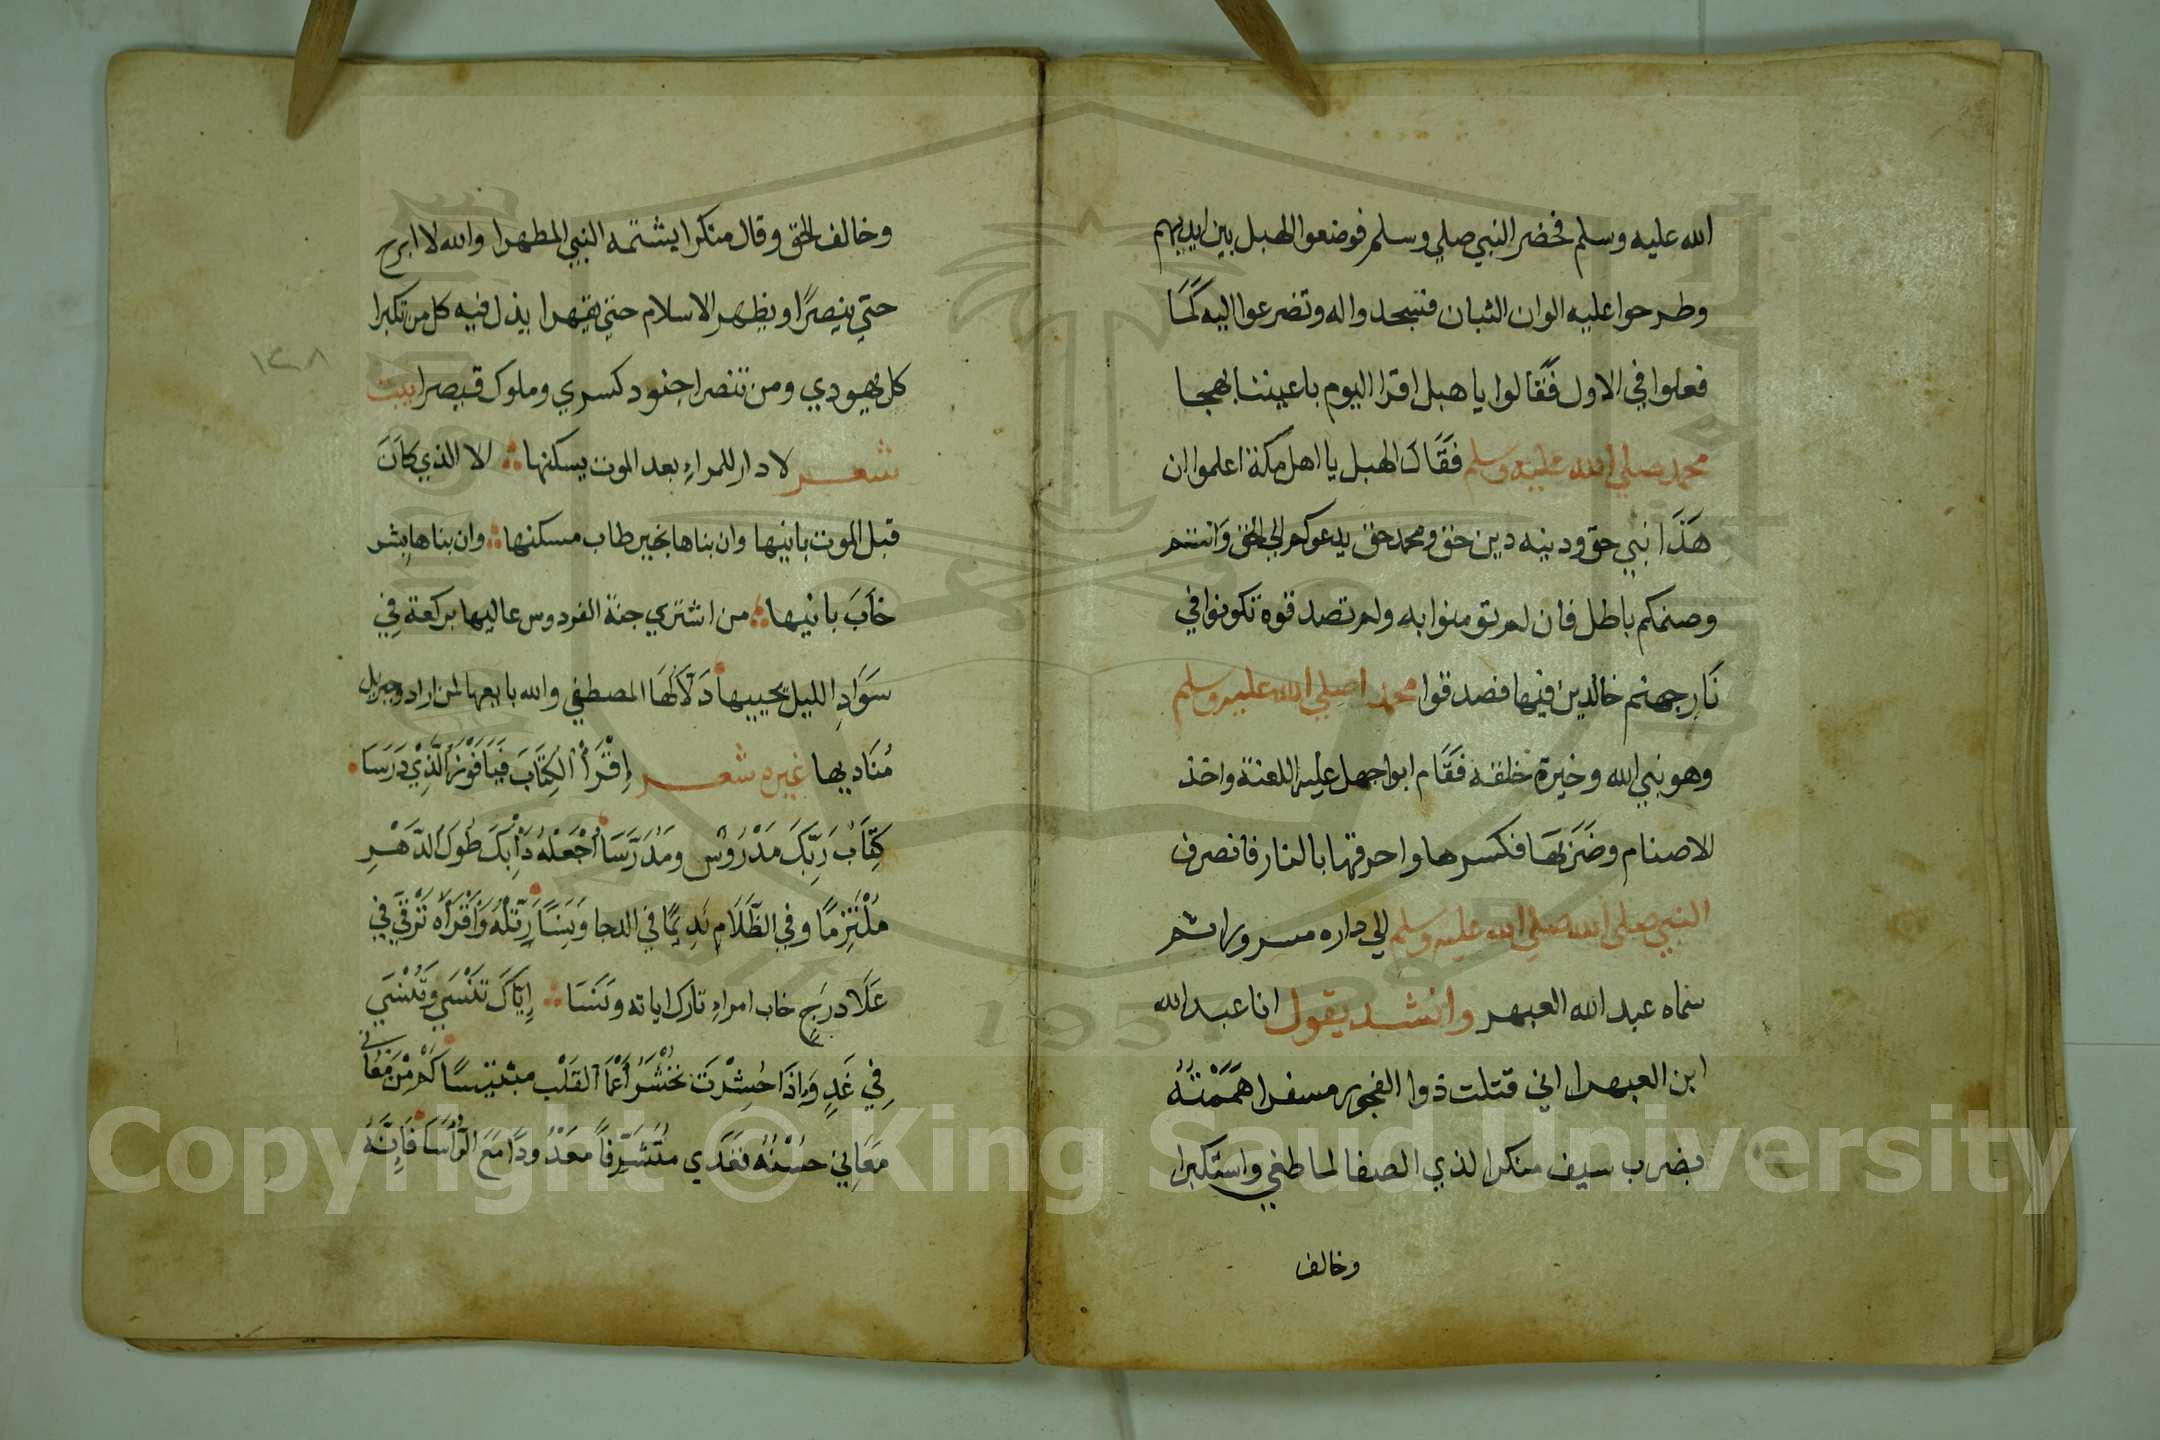 الله عليه وسلم فحضر النبي صلي وسلم فوضعوا الهبل بين ايديهم
وطرحوا عليه الوان الثبان فسجدوا له وتضرعوا اليه كَمَا
فعلوا في الاول فَقَالوا يا هبل اقرا اليوم باعيننا بهجا
محمد صلي الله عليه وسلم فَقَال الهبل يا اهل مكة اعلموا ان
هَذَا نبي حق ودينه دين حق ومحمد حق يدعوكم الي الحق وَانتم
وصنمكم باطل فان لم تومنوا به ولم تصدقوه تكونوا في
نَارِ جهنم خالدين فيها فصدقوا محمدا صلي الله عليه وسلم
وهو نبي الله وخيرة خلقه فقَام ابواجهل عليه اللعنة واخذ
للاصنام وضَرَبَهَا فكسرها واحرقها بالنار فانصرف
النبي صلي الله صلي الله عليه وسلم الي داره مسرورا ثم
سماه عبد الله العبهر وانشد يقول انا عبد الله
ابن العبهرا اني قتلت ذوا الفجور مسفرا هَمَمْتُهُ
بضرب سيف منكرا لذي الصفا لما طغي واستكبرا
وخالف
وخالف الحق وقال منكرا يشتمه النبي المطهرا والله لا ابرح
حتي ينصرًا ويظهر الاسلام حتي يقهرا يذل فيه كل من تكبرا
كل يهودي ومن تنصرا جنود كسري وملوك قيصرا بيت
شعر لا دار للمراءِ بعد الموت يسكنها الا الذي كَانَ
قبل الموت بانيها وان بناها بخير طاب مسكنها وان بناها بشر
خَابَ بانيها من اشتري جنة الفردوس عاليها بركعة فِي
سَوَادِ الليل يحييها دَلَالُهَا المصطفي والله بايعها لمن اراد وجبريل
مُنَاديها غيره شعر اِقْرَأْ الكِتَابَ فَيَا فَوْزَ الَّذِيْ دَرَسَا
كِتَابُ رَبِّكَ مَدْرُوْسٌ ومَدَرَّسَا اُجْعَلْهُ دَأْبَكَ طُولَ الدَّهْرِ
مُلْتَزِمًا وفي الظَّلَامِ نَدِيمًا في الدجا وَيَسَا رَتِّلْهُ وَاقْرَأْهُ تَرْقَي في
عَلَا درَجٍ خاب امراءِ تارك اياته ونَسَا اِيَّاكَ تَنْسَي وتُنْسَي
فِي غَدٍ وَاِذَا حُشِرْتَ تُحْشَرُ اَعْمَا القَلْب مبتئِسًا كَمْ مِنْ مَعَاني
مَعَانِي حُسْنُهُ فغَدَي مُتَشَرِّفاً معَدُودًا مَعَ الرُّأسَا فَاِنَّهُ
١٣٨
Copyright © King Saud University